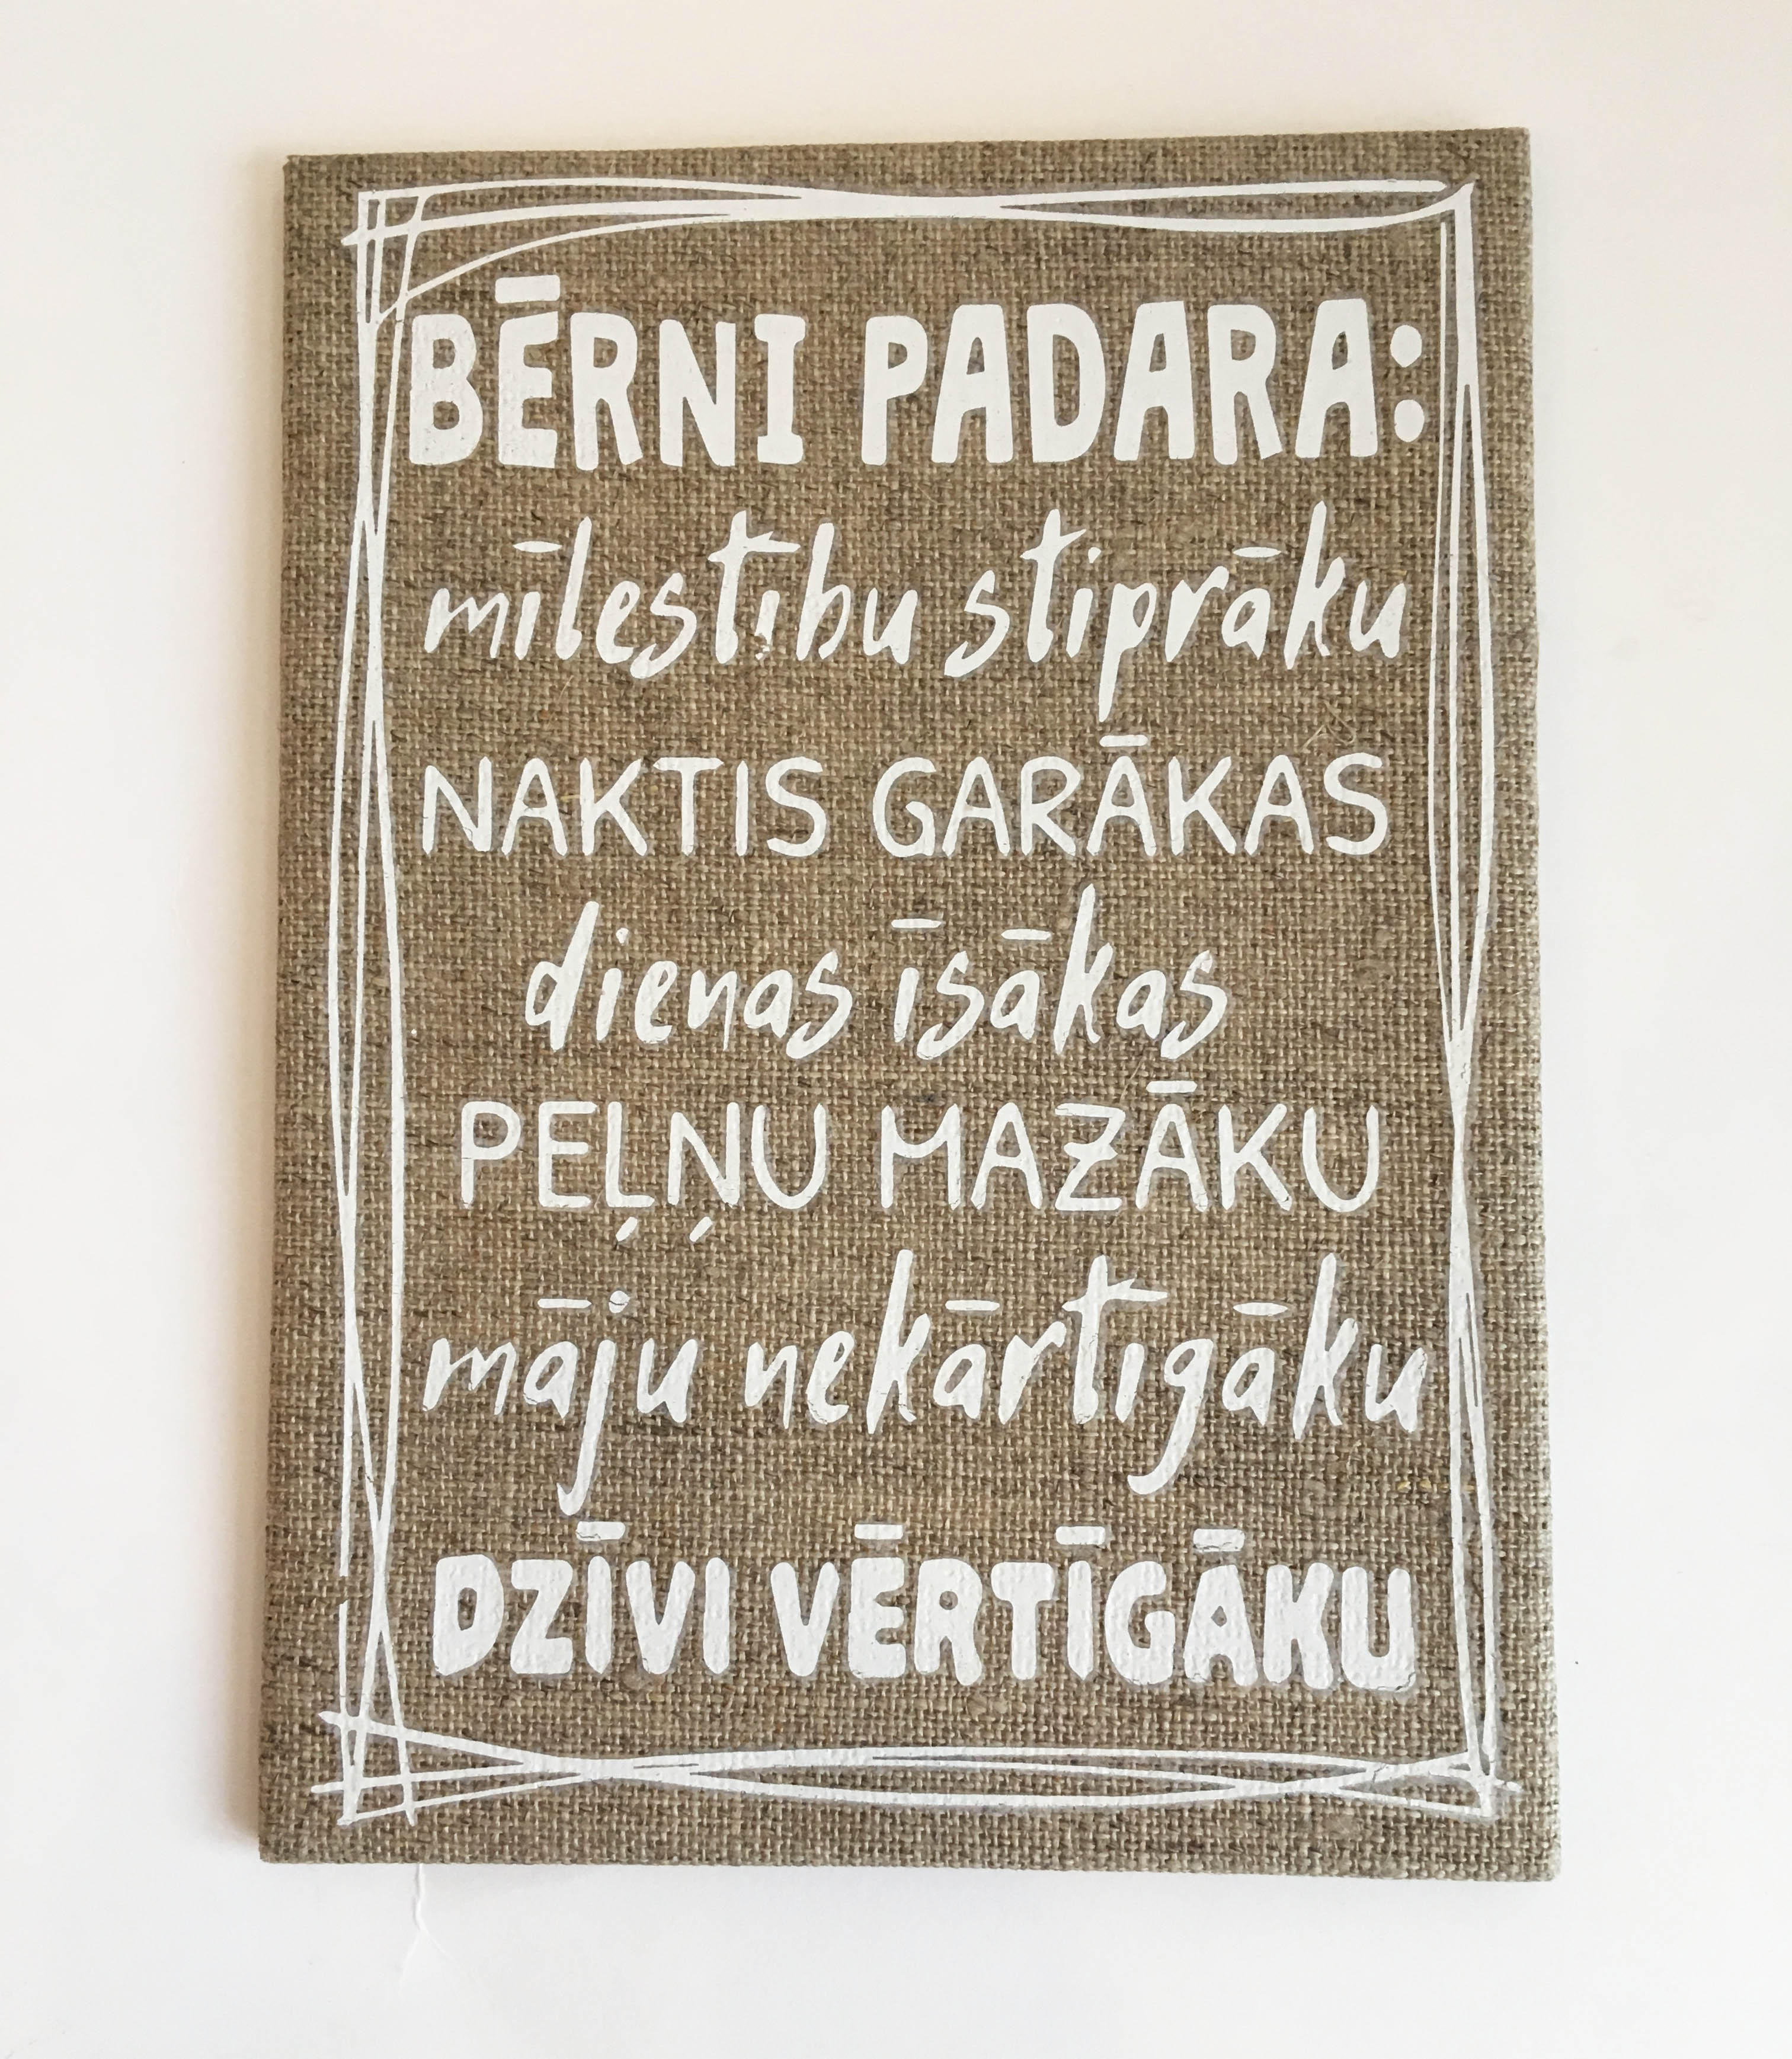 BĒRNI PADARA:
mīlestību stiprāku
NAKTIS GARĀKAS
dienas īsākas
PEĻŅU MAZĀKU
māju nekārtīgāku
DZĪVI VĒRTĪGĀKU